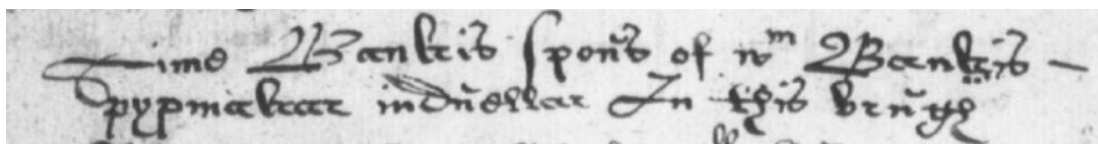 Bankis spoūs of wm Bankis —
pypmakear indūellar In this brūgh